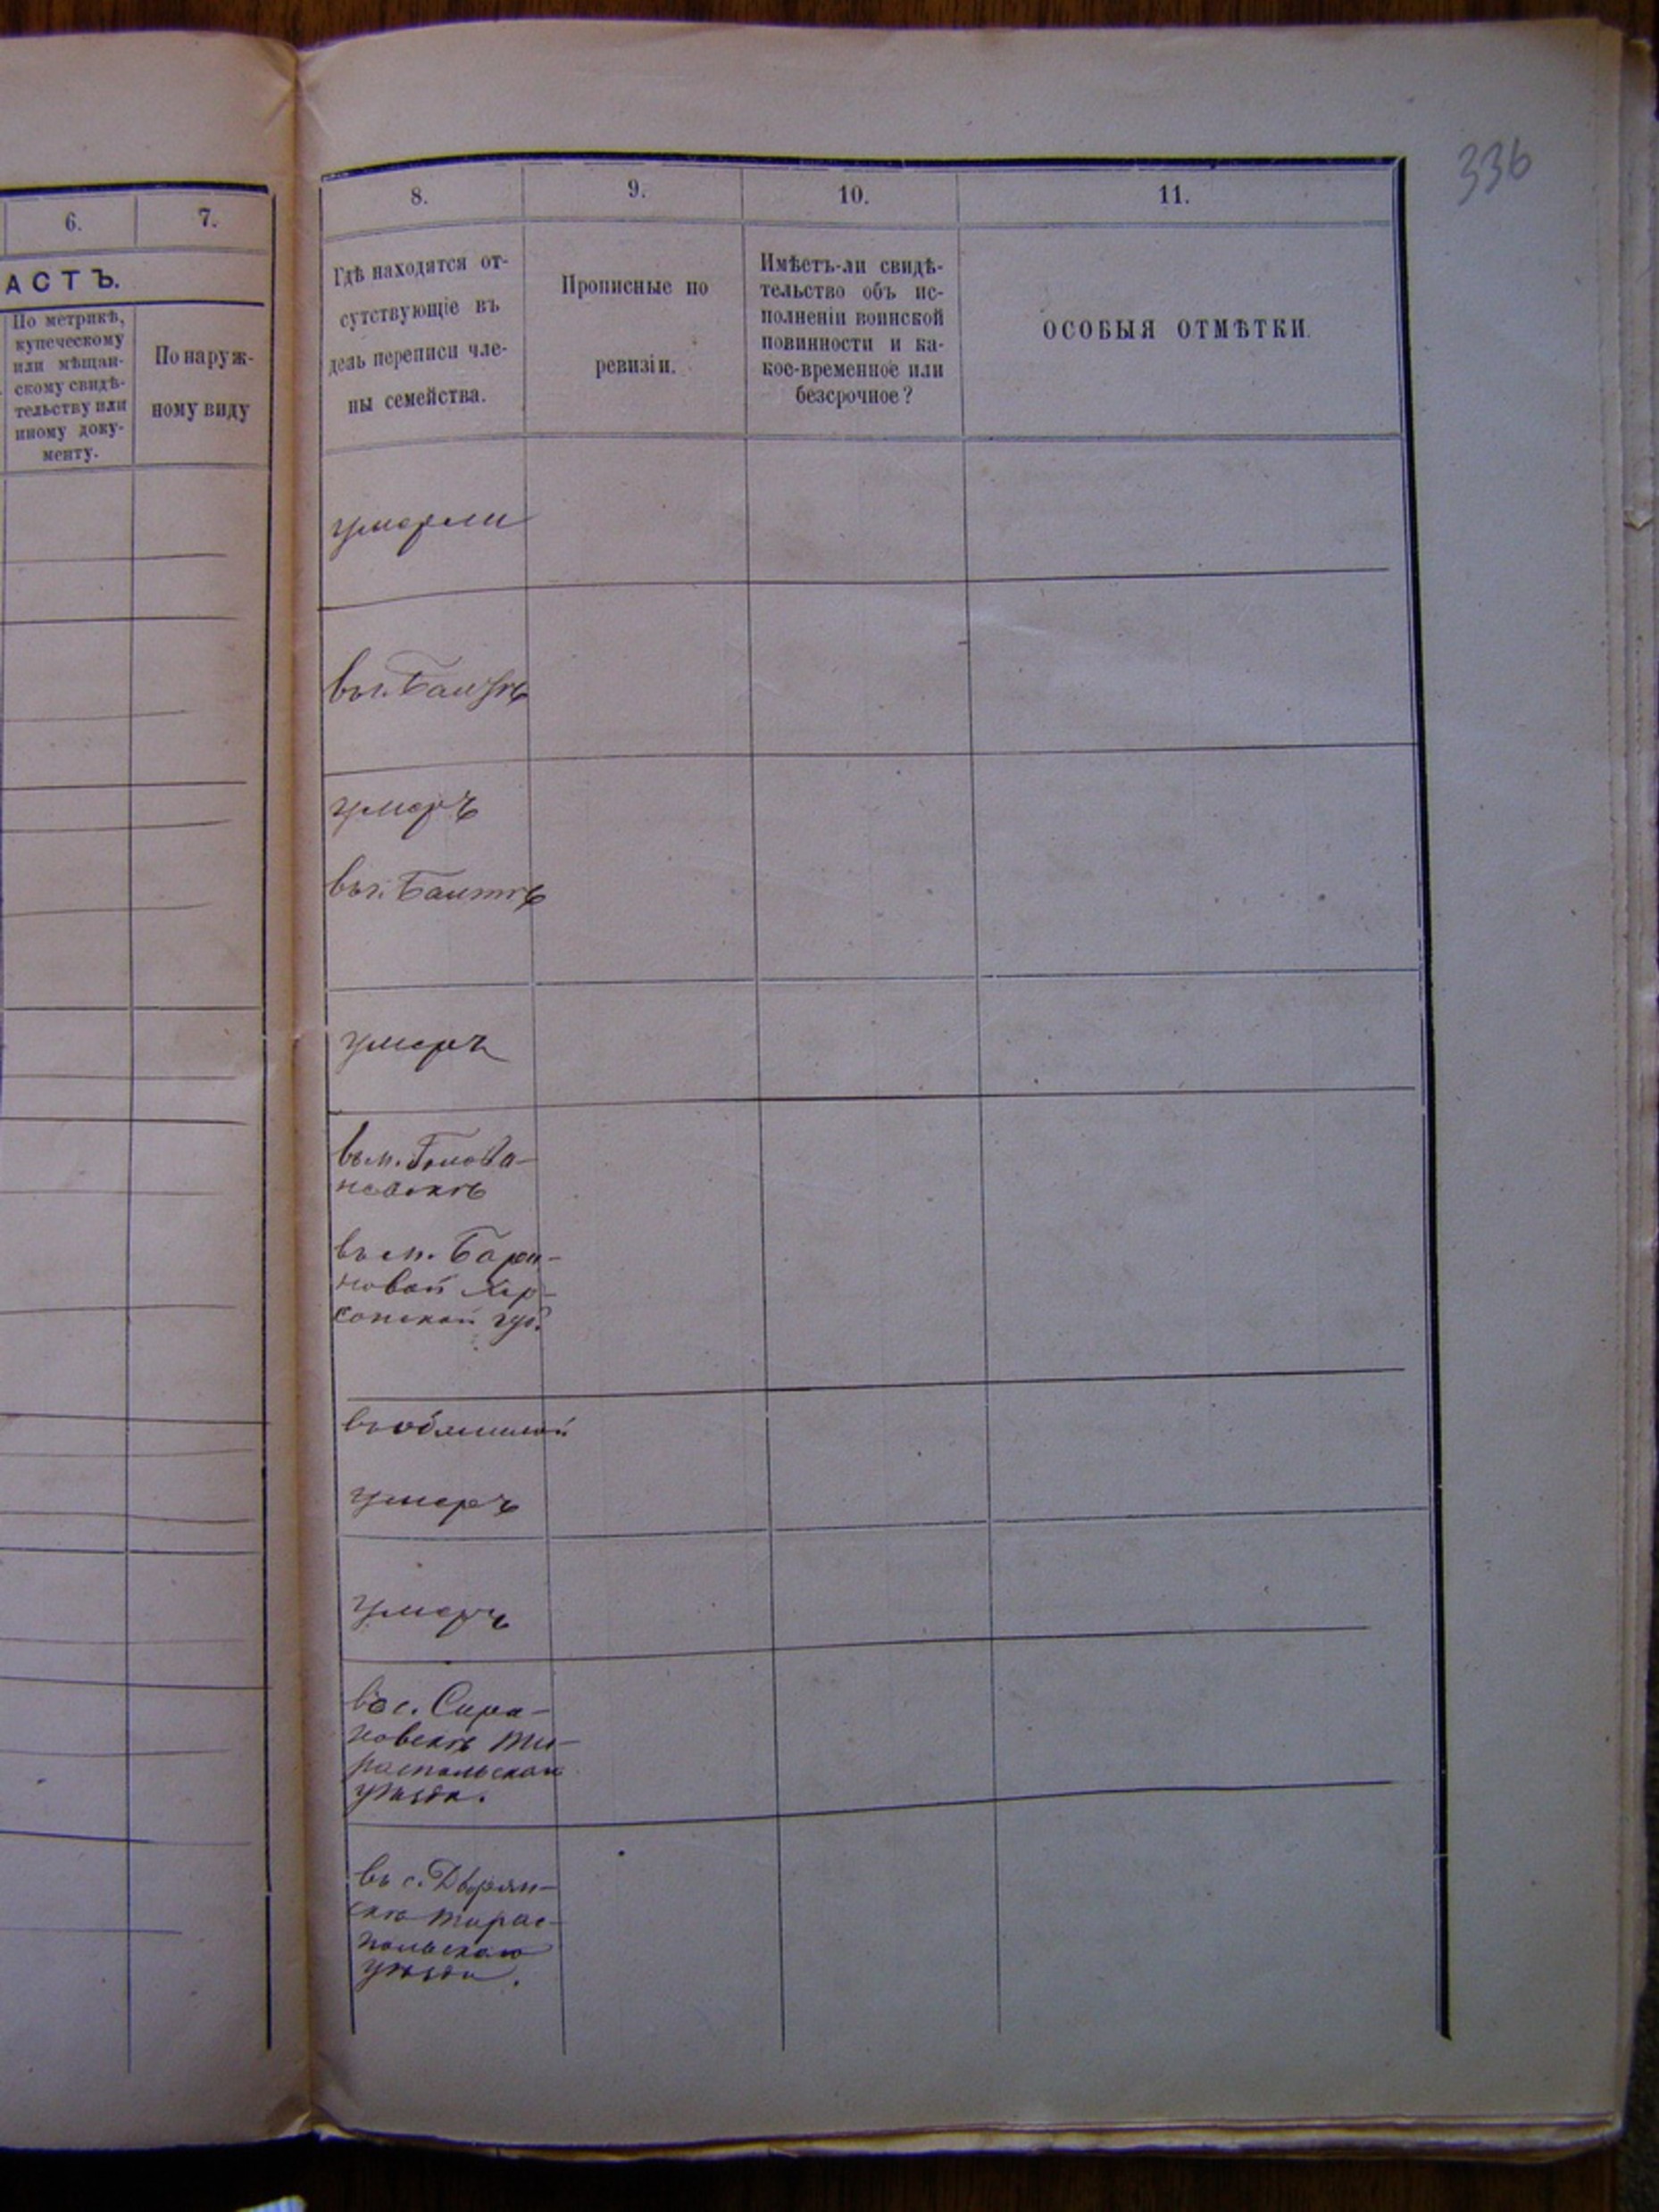 336
6.
7.
АСТЪ.
По метрикѣ,
купеческому
или мѣщан-
скому свидѣ-
тельству или
иному доку-
менту.
По наруж-
ному виду
8.
9.
10.
11.
Гдѣ находятся от-
сутствующіе въ
день переписи чле-
ны семейства.
Прописные по
ревизіи.
Имѣетъ-ли свидѣ-
тельство объ ис-
полненіи воинской
повинности и ка-
кое-временное или
безсрочное?
ОСОБЫЯ ОТМѢТКИ.
умерли
въ г. Балтѣ
умеръ
въ г. Балтѣ
умеръ
въ м. Голова-
невскѣ
въ м.
новой Хер-
сонской губ.
умеръ
умеръ
въ с.
новскѣ Ти-
распольскаго
уѣзда.
въ с. Дворян-
скѣ Тирас-
польскаго
уѣзда.